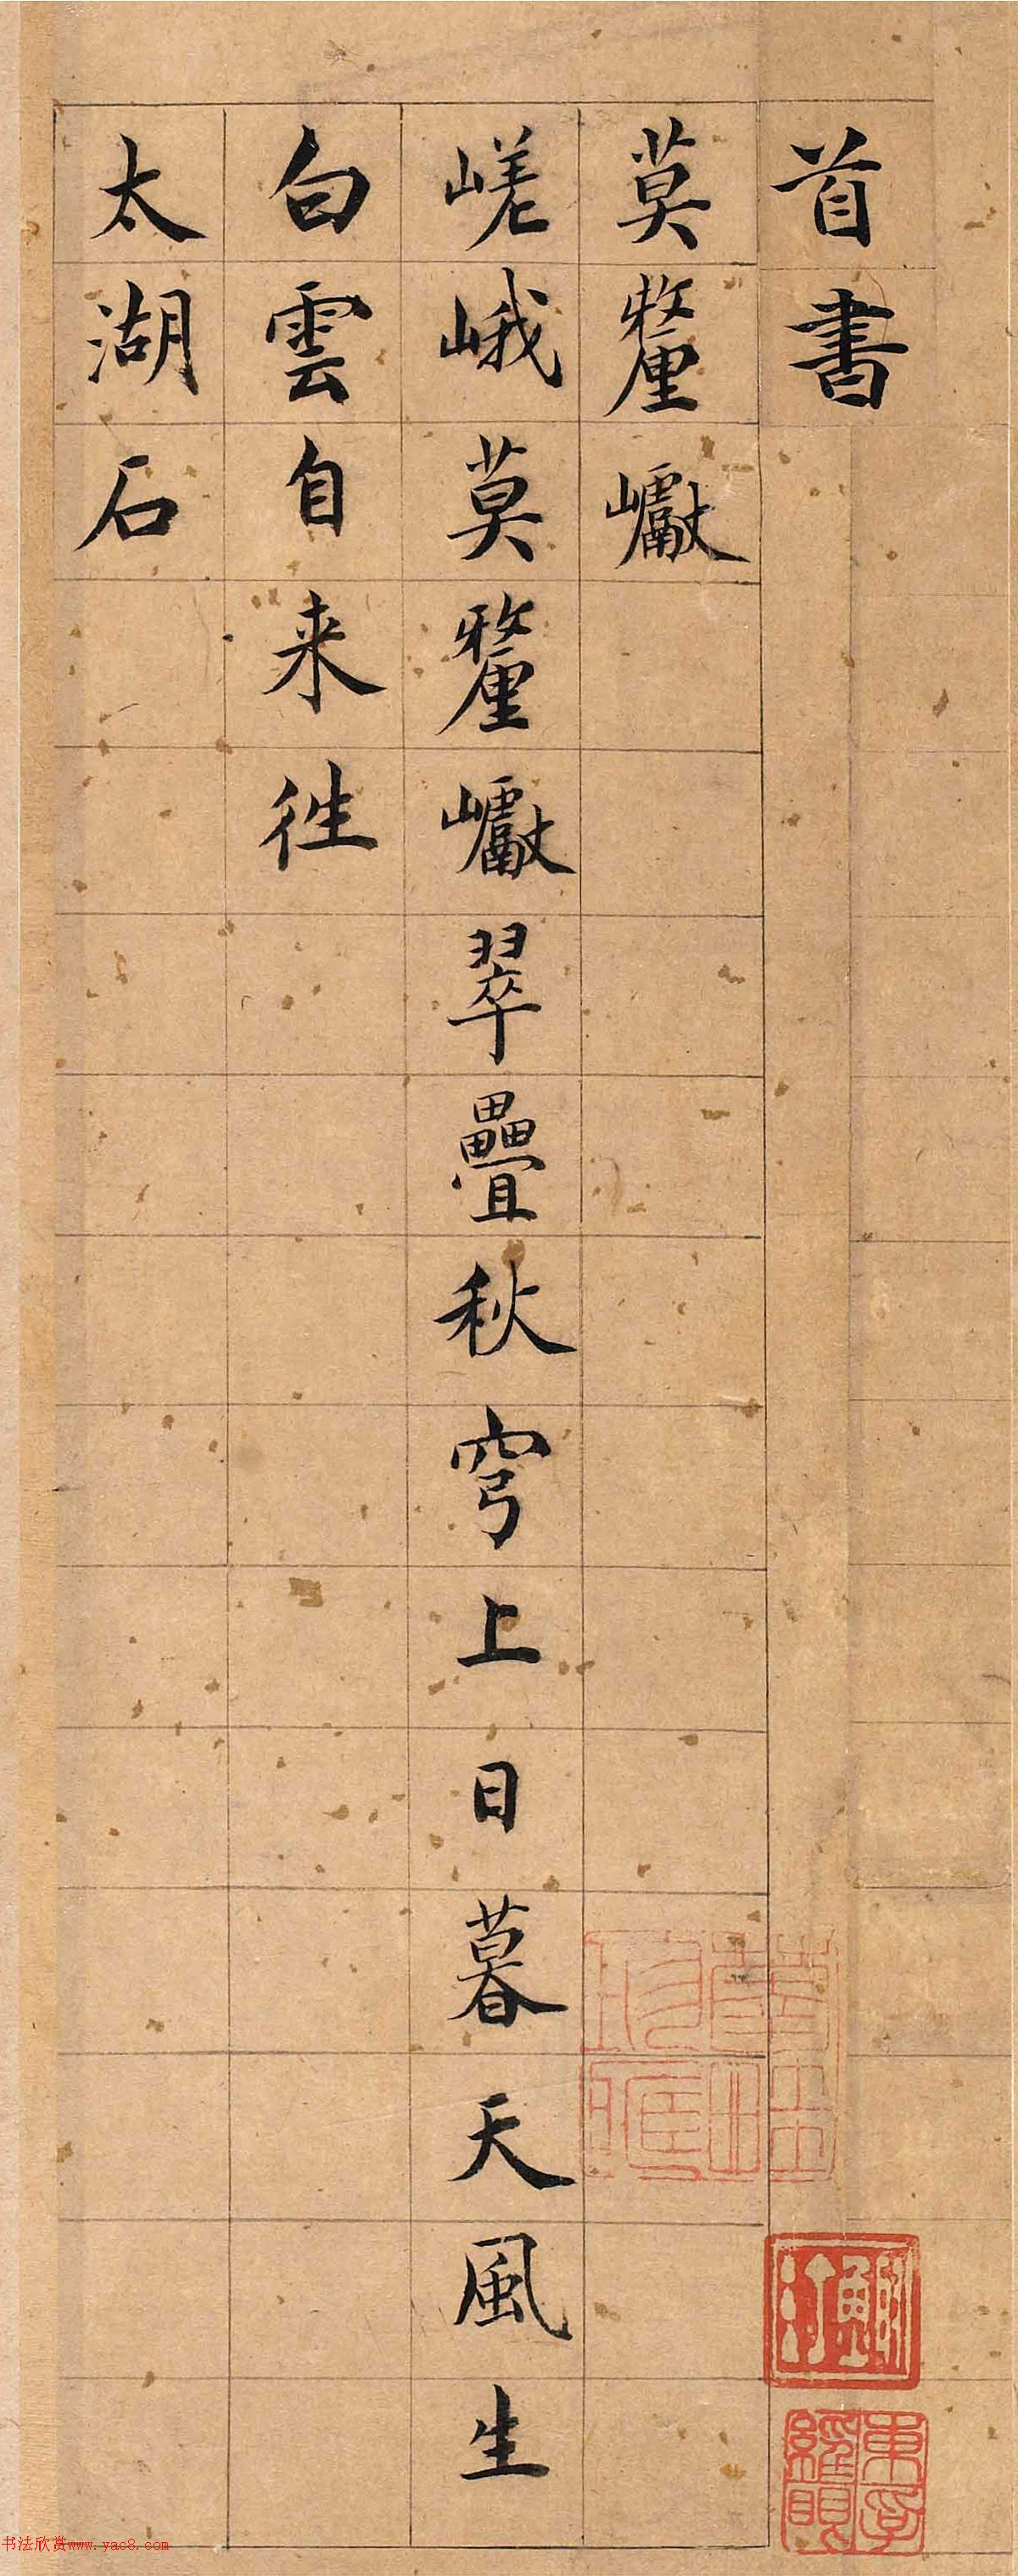 首書
莫釐巘
嵯峨莫釐巘翠疊秋穹上日暮天風生
白雲自来往
太湖石
书法欣赏www.yac8.com